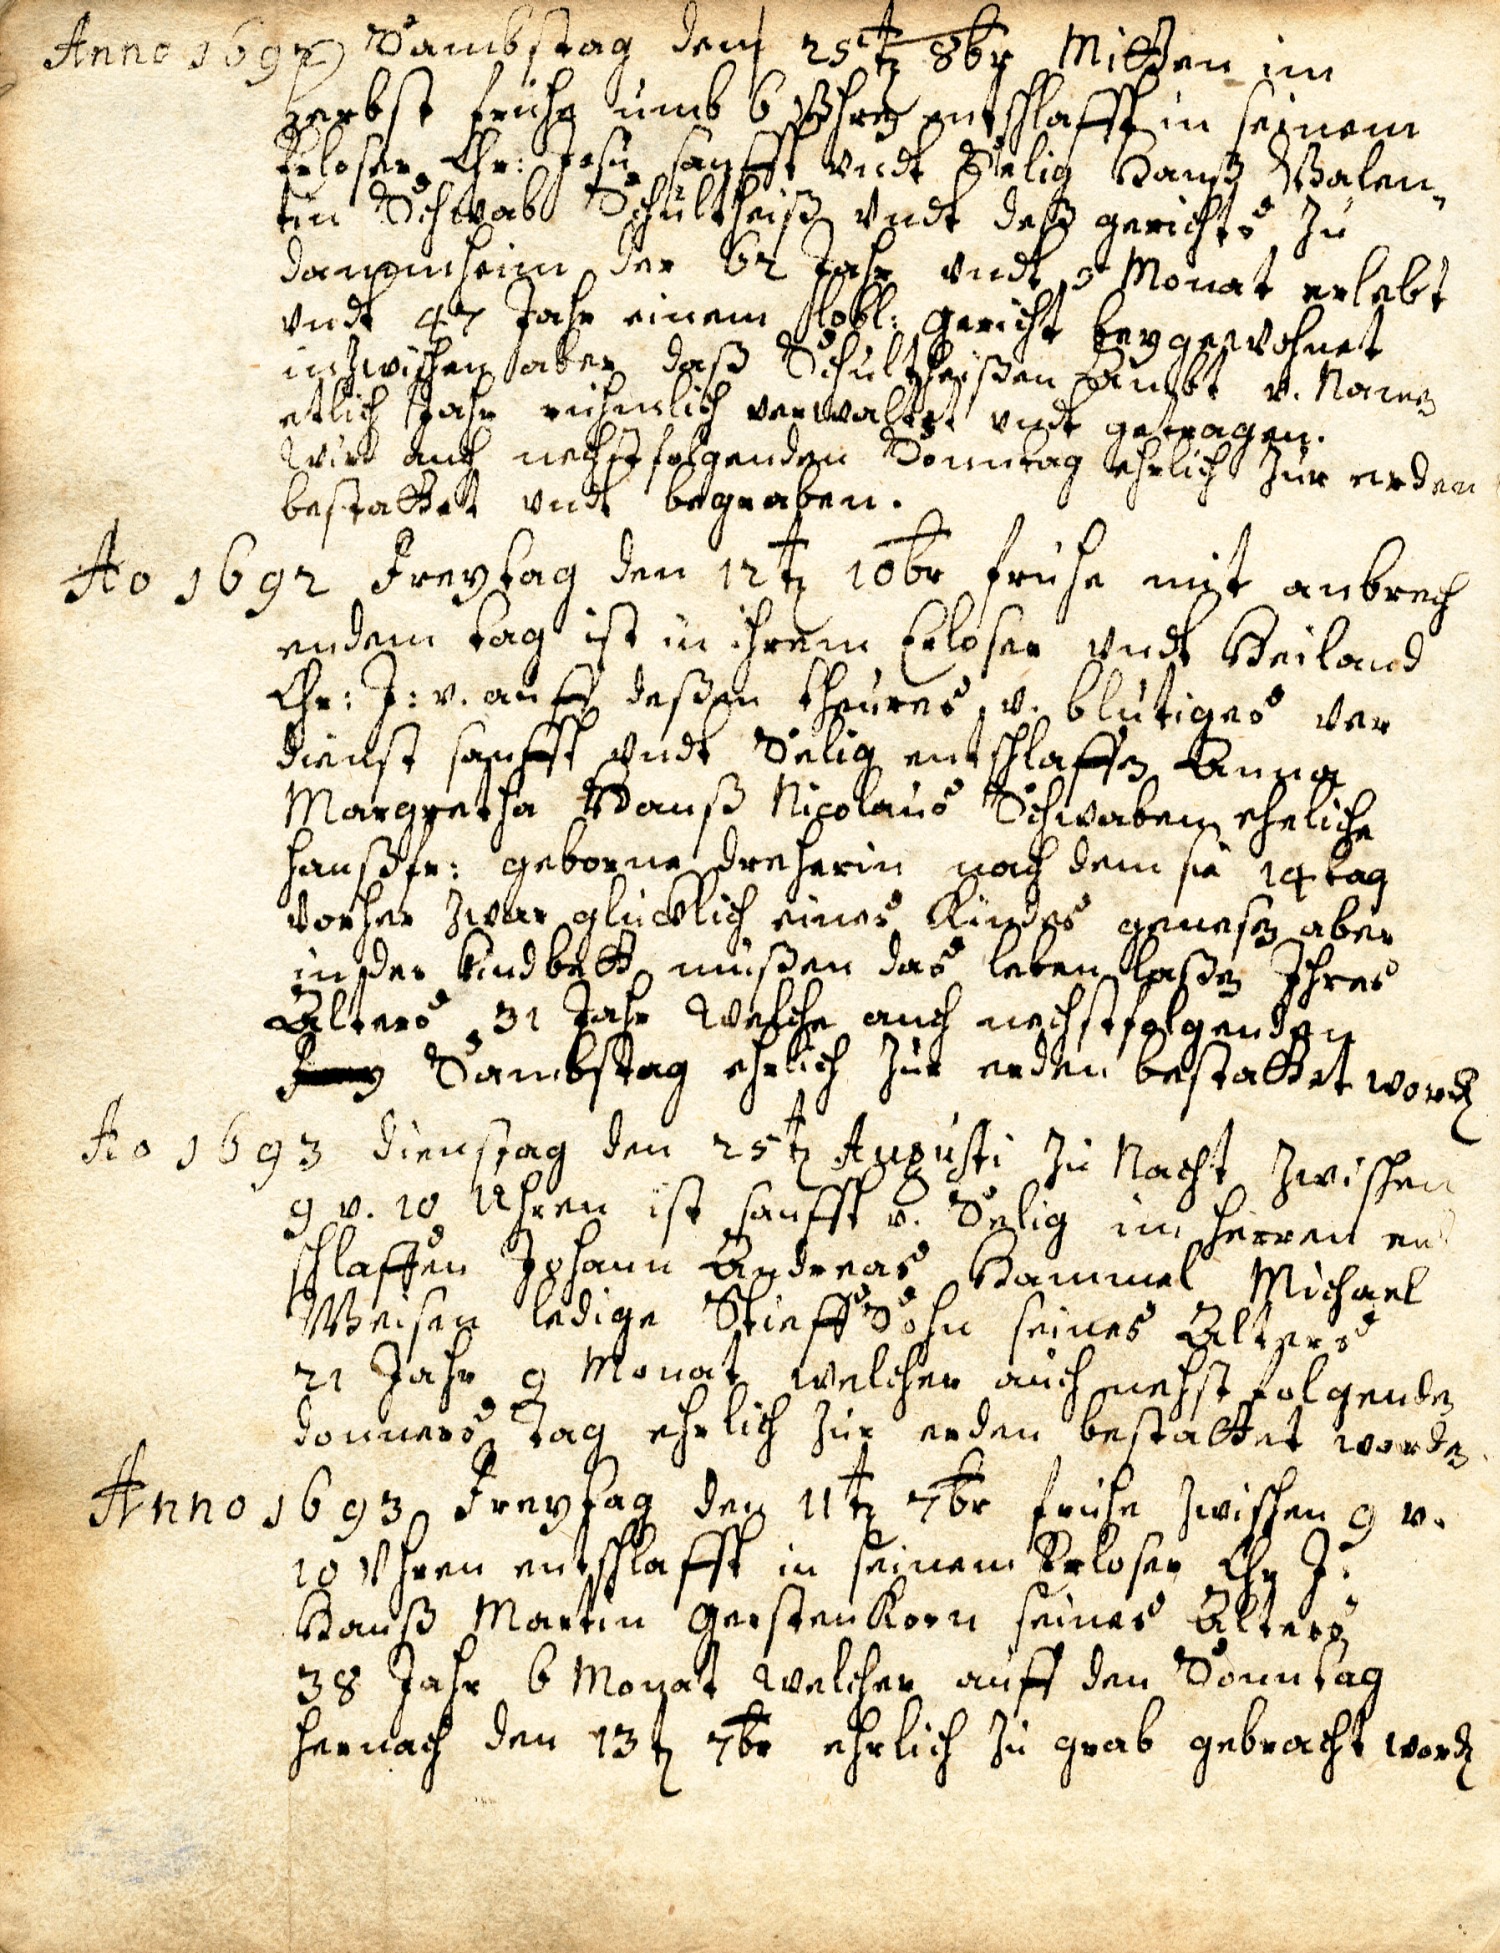 Anno 169 Sambstag den 25t 8br Mitten im
herbst frühe umb 6 Vhren entschlafft in seinem
Erloser Chr: Jesu sanfft vndt Selig Hanß Valen„
tin Schwab Schultheiß vndt deß gerichts zu
dannenheim der 62 Jahr vndt 3 Monat erlebt
vndt 47 Jahr einem löbl: gericht beygewohnet
inzwischen aber daß Schultheißen Ambt v. Namen
etlich Jahr rühmlich verwaltet vndt getragen.
Wird auch nechstfolgenden Sonntag ehrlich zur erden
bestattet vndt begraben.
Ao 1692 Freytag den 12t 10br frühe mit anbrech
endem tag ist in ihrem Erloser vndt Heiland
Chr: J: v. auff deßen theures v. blutiges ver
dienst sanfft vndt Selig entschlaffen Anna
Margretha Hanß Nicolaus Schwaben eheliche
haußfr: geborne dreherin nach dem sie 14 tag
vorher zwar glücklich eines Kindes genesen aber
in der Kindbett müßen das leben laßen Ihres
Alters 31 Jahr Welche auch nechstfolgenden
Sambstag ehrlich zur erden bestattet worden
Ao 1693 dienstag den 25t Augusti zu Nacht zwischen
9 v. 10 Uhren ist sanfft v. Selig im herren en
schlaffen Johann Andreas Hammel Michael
Weisen ledige Stieff Sohn seines Alters
21 Jahr 9 Monat welcher auch nechst folgenden
donners Tag ehrlich zur erden bestattet worden.
Anno 1693 Freytag den 11t 7br frühe zwischen 9 v.
10 Vhren entschlafft in seinem Erloser Chr J:
Hanß Martin Gerstenkorn seines Alters
38 Jahr 6 Monat Welcher auff den Sonntag
hernach den 13t 7br ehrlich zu grab gebracht worden